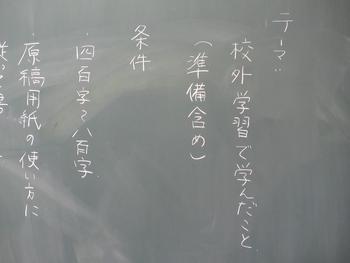 テーマ…
校外学習で学んだこと
（準備含め）
条件
・四百字〜八百字
・原稿用紙の使い方に